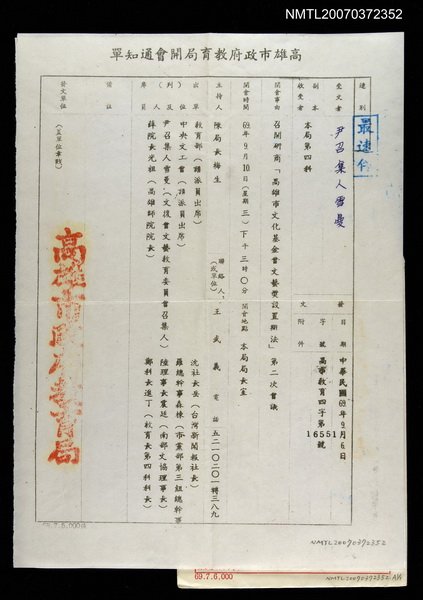 NMTL20070372352
高雄市政府教育局開會通知單
速別
最速件
受文者 尹召集人雪曼
副本收受者 本局第四科
發文 日期 中華民國69年9月6日
字號 高市教育四字第16551號
附件
開會事由 召開研商「高雄市文化基金會文藝獎設置辦法」第二次會議
開會時間 69年9月10日(星期三)下午三時0分
開會地點 本局局長室
主持人 陳局長梅生
聯絡人(或單位) 王武義
電話 五二一0二0一轉三八九
出(列)席單位及人員
教育部(請派員出席)
中央文工會(請派員出席)
尹召集人雪曼(文復會文藝教育委員會召集人)
薛院長光祖(高雄師院院長)
沈社長岳(台灣新聞報社長)
羅總幹事森棟(市黨部第三組總幹事)
陸理事長震廷(南部文協理事長)
鄭科長進丁(教育局第四科科長)
備註
發文單位(蓋單位章戳)
高雄市政府教育局
69.7.6,000份
NMTL20070372352
69.7.6,000
NMTL20070372352